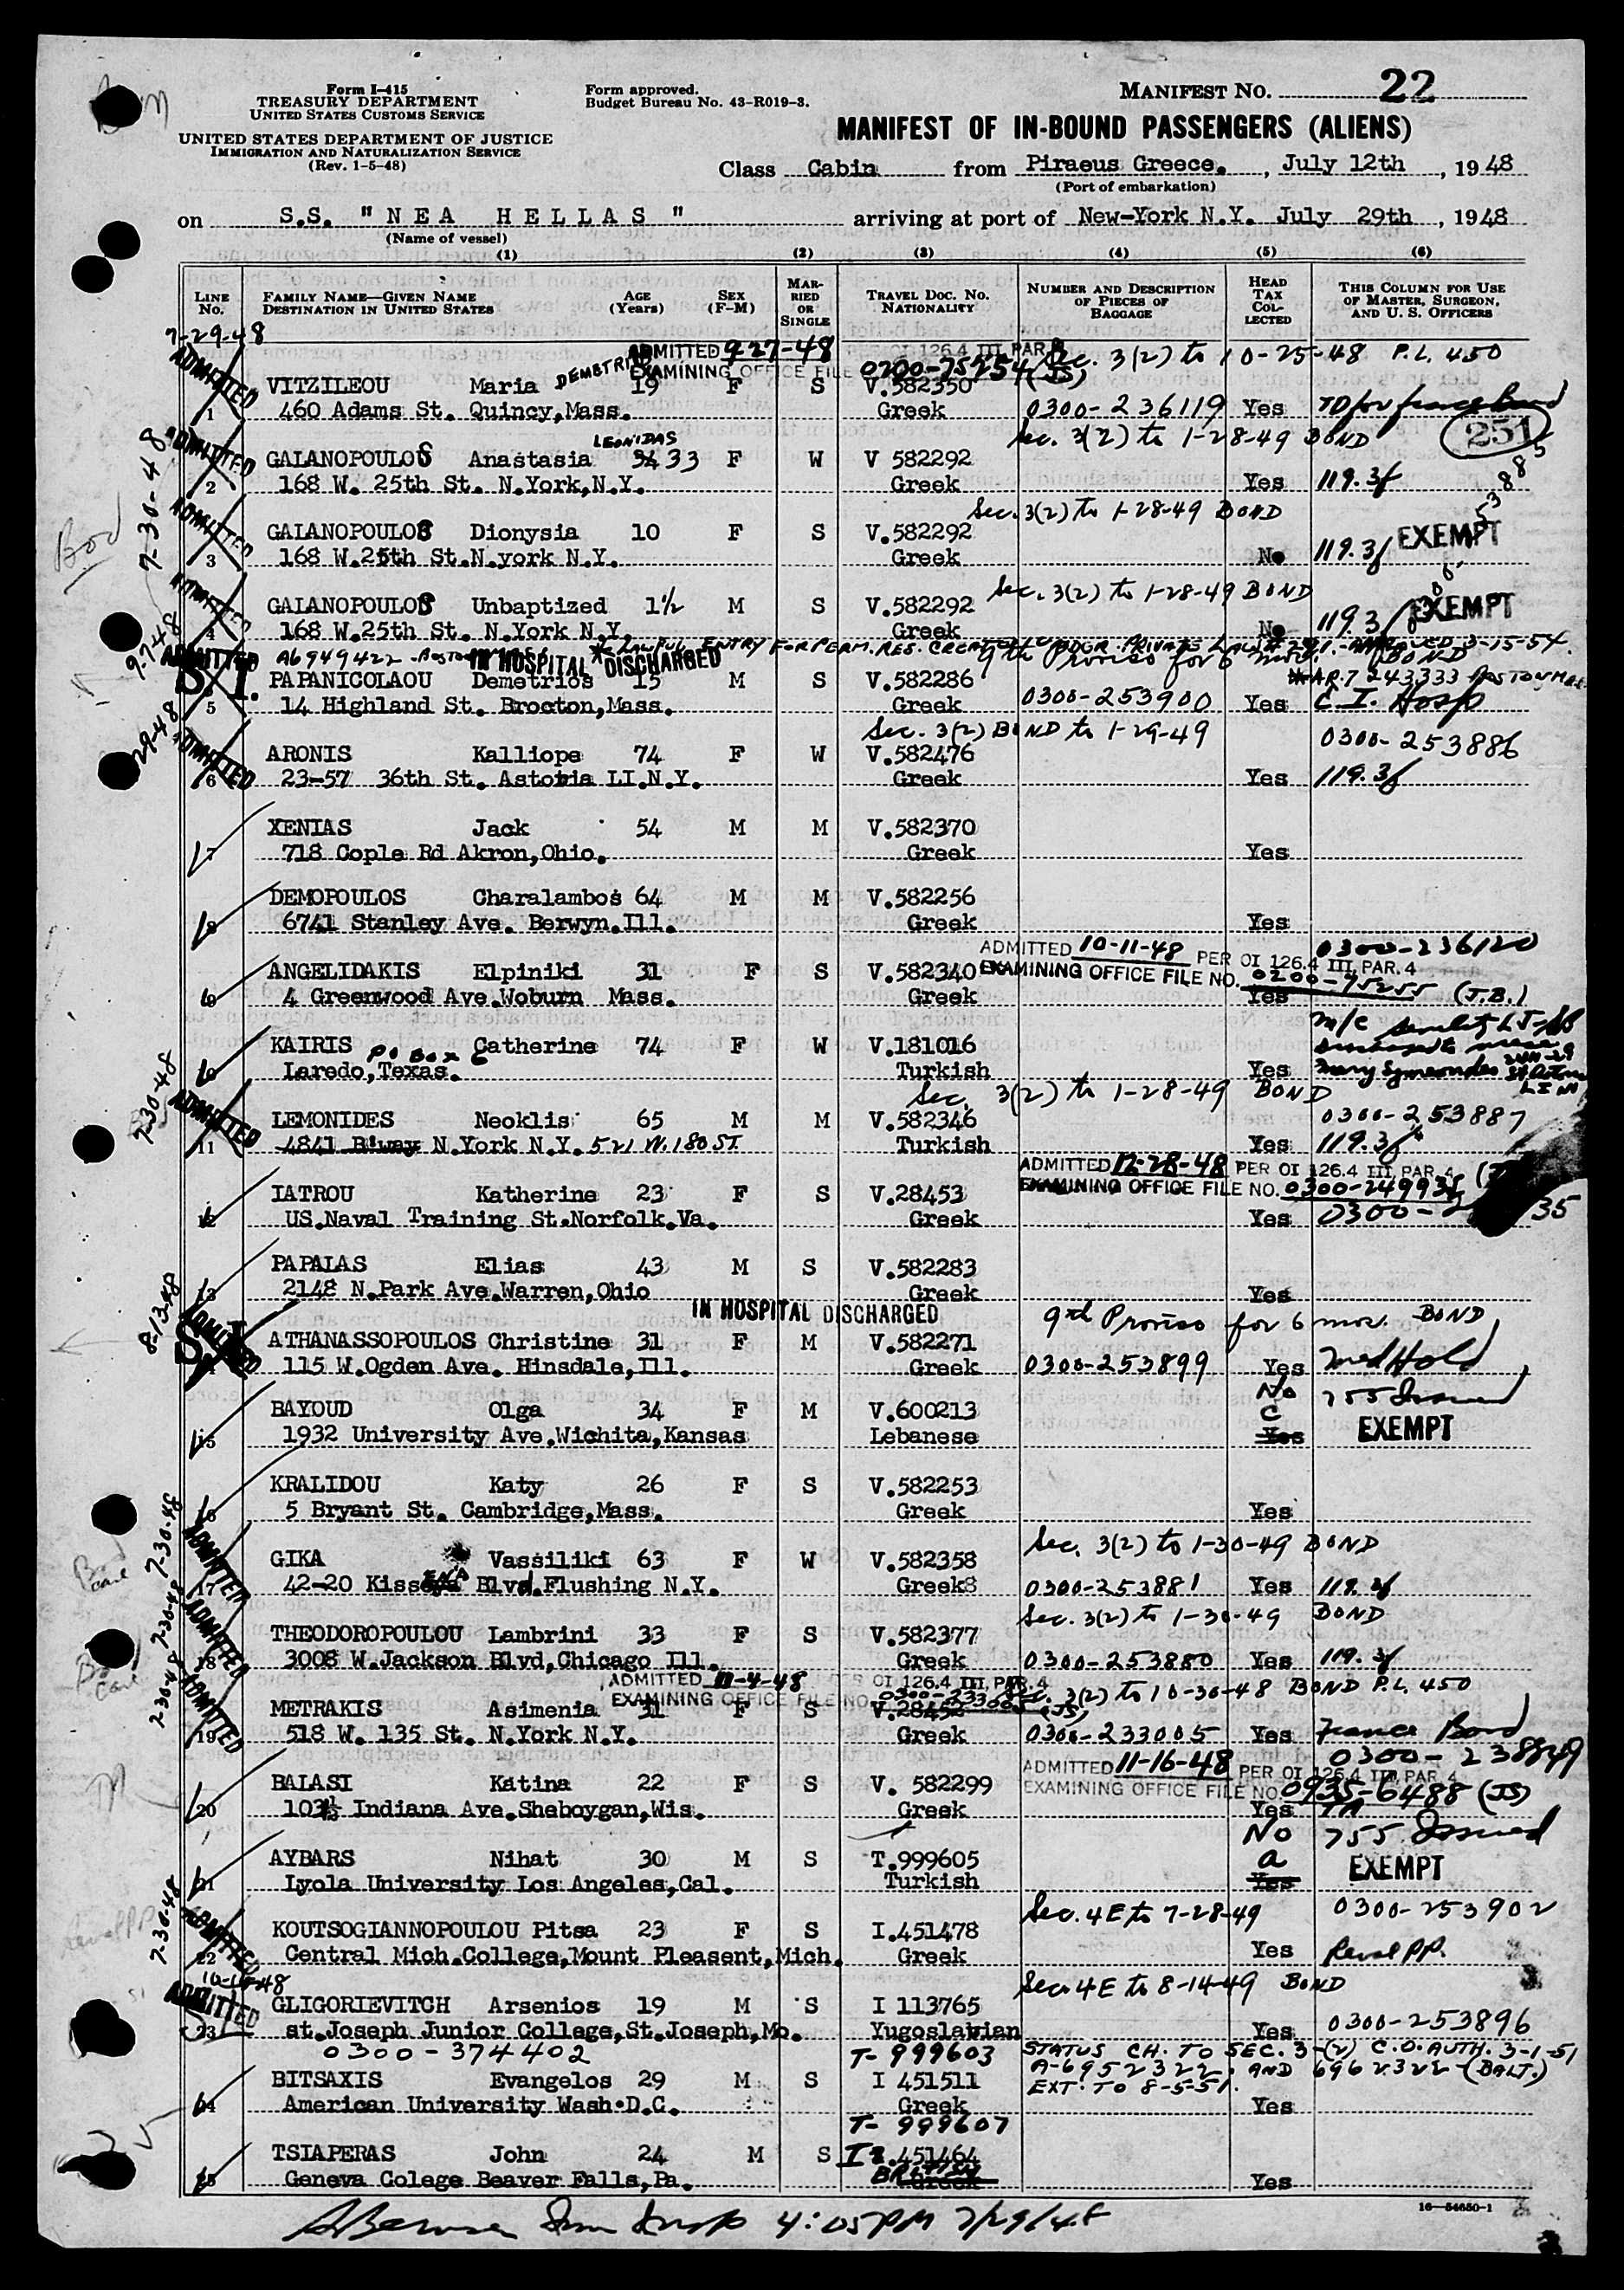 Form I-415
TREASURY DEPARTMENT
UNITED STATES CUSTOMS SERVICE
UNITED STATES DEPARTMENT OF JUSTICE
IMMIGRATION AND NATURALIZATION SERVICE
(Rev. 1-5-48)
Form approved.
Budget Bureau No. 43-R019-3.
MANIFEST NO. 22
MANIFEST OF IN-BOUND PASSENGERS (ALIENS)
Class Cabin from Piraeus Greece. , July 12th , 1948
(Port of embarkation)
on S.S. "NEA HELLAS" arriving at port of New-York N.Y. July 29th , 1948
(Name of vessel)
(1) (2) (3) (4) (5) (6)
LINE NO. FAMILY NAME—GIVEN NAME DESTINATION IN UNITED STATES AGE (Years) SEX (F-M) MARRIED OR SINGLE TRAVEL DOC. NO. NATIONALITY NUMBER AND DESCRIPTION OF PIECES OF BAGGAGE HEAD TAX COLLECTED THIS COLUMN FOR USE OF MASTER, SURGEON, AND U. S. OFFICERS
7-29-48
ADMITTED 9-27-48 PER OI 126.4 III PAR. Sec. 3(2) to 10-25-48 P.L. 450
EXAMINING OFFICE FILE 0200-75254 (JS)
ADMITTED VITZILEOU Maria DEMETRIOS 19 F S V.582350
1 460 Adams St. Quincy,Mass. Greek 0300-236119 Yes
Sec. 3(2) to 1-28-49 BOND 251
7-30-48 ADMITTED GALANOPOULOS Anastasia LEONIDAS 34 33 F W V 582292
2 168 W. 25th St. N.York,N.Y. Greek Yes 119.3f
Sec. 3(2) to 1-28-49 BOND
ADMITTED GALANOPOULOS Dionysia 10 F S V.582292 EXEMPT
3 168 W.25th St.N.york N.Y. Greek No 119.3f
Sec. 3(2) to 1-28-49 BOND
ADMITTED GALANOPOULOS Unbaptized 1½ M S V.582292 EXEMPT
4 168 W.25th St. N.York N.Y. Greek No 119.3f
9-7-48 ADMITTED A6949422 IN HOSPITAL DISCHARGED
9th Proviso for 6 mos. BOND
S.I. PAPANICOLAOU Demetrios 15 M S V.582286
5 14 Highland St. Brocton,Mass. Greek 0300-253900 Yes
Sec. 3(2) BOND to 1-29-49
ADMITTED ARONIS Kalliope 74 F W V.582476 0300-253886
6 23-57 36th St. Astoria LI.N.Y. Greek Yes 119.3f
XENIAS Jack 54 M M V.582370
7 718 Cople Rd Akron,Ohio. Greek Yes
DEMOPOULOS Charalambos 64 M M V.582256
8 6741 Stanley Ave. Berwyn.Ill. Greek Yes
ADMITTED 10-11-48 PER OI 126.4 III PAR. 4 0300-236120
ANGELIDAKIS Elpiniki 31 F S V.582340 EXAMINING OFFICE FILE NO. 0200-75255 (J.B.)
9 4 Greenwood Ave.Woburn Mass. Greek Yes
KAIRIS Catherine 74 F W V.181016
10 Laredo,Texas. PO BOX 6 Turkish Yes
7-30-48 Sec. 3(2) to 1-28-49 BOND
ADMITTED LEMONIDES Neoklis 65 M M V.582346 0300-253887
11 4841 B'way N.York N.Y. 521 W.180 ST Turkish Yes 119.3f
ADMITTED 12-28-48 PER OI 126.4 III PAR. 4
IATROU Katherine 23 F S V.28453 EXAMINING OFFICE FILE NO.
12 US.Naval Training St.Norfolk.Va. Greek Yes
PAPALAS Elias 43 M S V.582283
13 2148 N.Park Ave.Warren,Ohio Greek Yes
8-13-48 IN HOSPITAL DISCHARGED 9th Proviso for 6 mos. BOND
ADMITTED S.I. ATHANASSOPOULOS Christine 31 F M V.582271
115 W.Ogden Ave. Hinsdale,Ill. Greek 0300-253899 Yes Med Hold
No 755 Issued
BAYOUD Olga 34 F M V.600213 C EXEMPT
15 1932 University Ave.Wichita,Kansas Lebanese Yes
KRALIDOU Katy 26 F S V.582253
16 5 Bryant St. Cambridge,Mass. Greek Yes
7-30-48 Sec. 3(2) to 1-30-49 BOND
ADMITTED GIKA Vassiliki 63 F W V.582358
17 42-20 Kissena Blvd.Flushing N.Y. Greek 0300-253881 Yes 119.3f
7-30-48 Sec. 3(2) to 1-30-49 BOND
ADMITTED THEODOROPOULOU Lambrini 33 F S V.582377
18 3008 W.Jackson Blvd,Chicago Ill. Greek 0300-253880 Yes 119.3f
ADMITTED 11-4-48 PER OI 126.4 III, PAR. 4
EXAMINING OFFICE FILE NO. 3(2) to 10-30-48 BOND P.L. 450
ADMITTED METRAKIS Asimenia 31 F S V.28452 (JS)
19 518 W. 135 St. N.York N.Y. Greek 0300-233005 Yes
ADMITTED 11-16-48 PER OI 126.4 III, PAR. 4
BALASI Katina 22 F S V. 582299 EXAMINING OFFICE FILE NO. 0935-6488 (JS)
20 103½ Indiana Ave.Sheboygan,Wis. Greek Yes
No 755 Issued
AYBARS Nihat 30 M S T.999605 a EXEMPT
21 Lyola University Los Angeles,Cal. Turkish Yes
7-30-48 Sec. 4E to 7-28-49 0300-253902
ADMITTED KOUTSOGIANNOPOULOU Pitsa 23 F S I.451478
22 Central Mich.College,Mount Pleasent,Mich. Greek Yes
Sec. 4E to 8-14-49 BOND
ADMITTED GLIGORIEVITCH Arsenios 19 M S I 113765
23 st.Joseph Junior College,St.Joseph,Mo. Yugoslavian Yes 0300-253896
0300-374402 T-999603 STATUS CH. TO SEC. 3-(2) C.O. AUTH. 3-1-51
BITSAXIS Evangelos 29 M S I 451511 A-6952322, AND 6962322 (BALT.)
EXT. TO 8-5-51.
24 American University Wash.D.C. Greek Yes
T-999607
TSIAPERAS John 24 M S I.451464
25 Geneva Colege Beaver Falls,Pa. BRITISH Greek Yes
16—54650-1
4:05PM 7/29/48